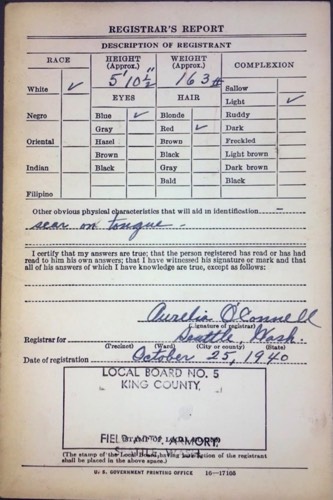 REGISTRAR'S REPORT
DESCRIPTION OF REGISTRANT
RACE HEIGHT (Approx.) WEIGHT (Approx.) COMPLEXION
5'10½" 163#
White ✓ Sallow
EYES HAIR Light ✓
Negro Blue ✓ Blonde Ruddy
Gray Red ✓ Dark
Oriental Hazel Brown Freckled
Brown Black Light brown
Indian Black Gray Dark brown
Bald Black
Filipino
Other obvious physical characteristics that will aid in identification –
scar on tongue –
I certify that my answers are true; that the person registered has read or has had
read to him his own answers; that I have witnessed his signature or mark and that
all of his answers of which I have knowledge are true, except as follows:
Aurelia O'Connell
(Signature of registrar)
Registrar for Seattle, Wash.
(Precinct) (Ward) (City or county) (State)
Date of registration October 25, 1940
LOCAL BOARD NO. 5
KING COUNTY,
FIELD ARTY. ARMORY,
(The stamp of the Local Board having jurisdiction of the registrant
shall be placed in the above space.)
U. S. GOVERNMENT PRINTING OFFICE 16—17105